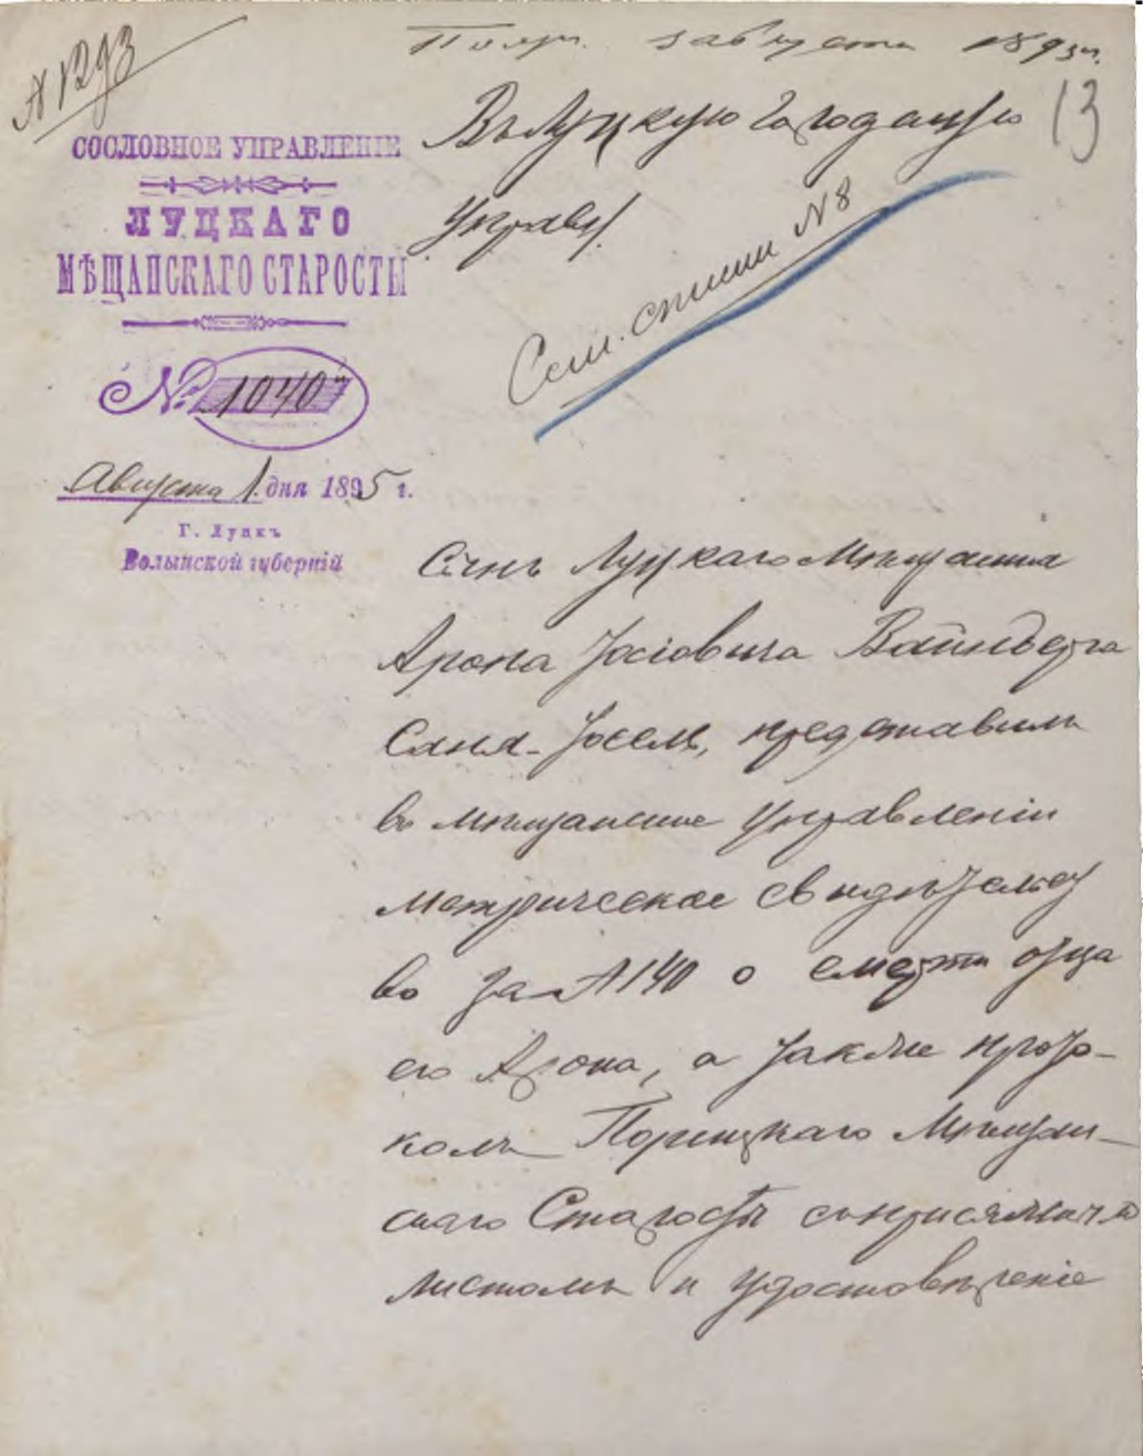 № 1293
Получ. 3 августа 1895 г.
13
Въ Луцкую Городскую
Управу.
Сем. списки № 8
СОСЛОВНОЕ УПРАВЛЕНІЕ
ЛУЦКАГО
МѢЩАНСКАГО СТАРОСТЫ
№ 1040
Августа 1 дня 1895 г.
Г. Луцкъ
Волынской губерніи
Сынъ Луцкаго Мѣщанина
Арона Іосіовича Вайнберга
Саня-Іосель, представилъ
въ мѣщанское Управленіи
метрическое свидѣтельст
во за № 140 о смерти отца
его Арона, а также прото-
колъ Порицкаго Мѣщан-
скаго Старосты съ присяжнымъ
листомъ и удостовѣреніе